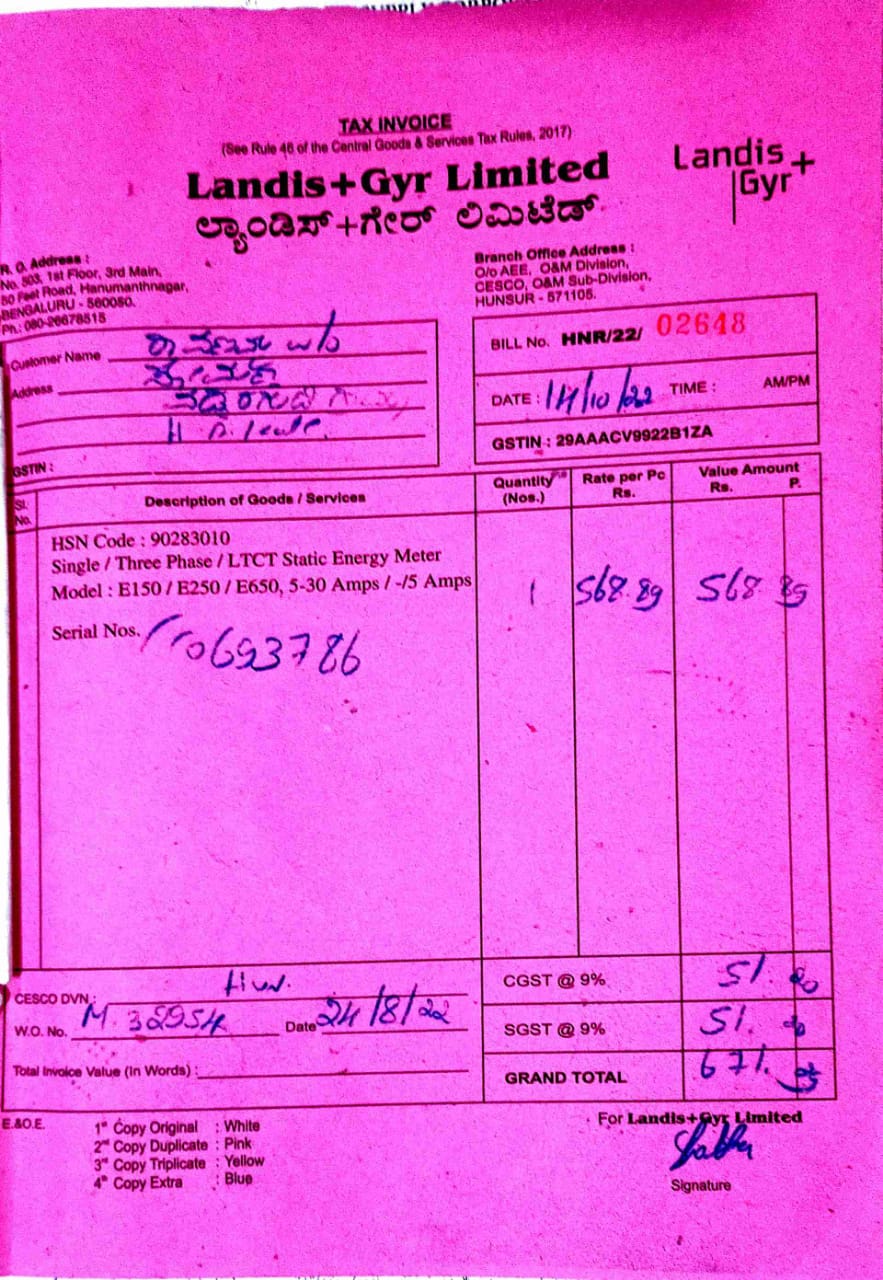 TAX INVOICE
(See Rule 46 of the Central Goods & Services Tax Rules, 2017)
Landis+Gyr Limited
ಲ್ಯಾಂಡಿಸ್+ಗೇರ್ ಲಿಮಿಟೆಡ್
Landis
Gyr+
R. O. Address :
No. 503, 1st Floor, 3rd Main,
50 Feet Road, Hanumanthnagar,
BENGALURU - 560050.
Ph.: 080-26678515
Branch Office Address :
O/o AEE, O&M Division,
CESCO, O&M Sub-Division,
HUNSUR - 571105.
Customer Name w/o
Address
GSTIN :
BILL No. HNR/22/ 02648
DATE : 14/10/22 TIME : AM/PM
GSTIN : 29AAACV9922B1ZA
Sl. No. Description of Goods / Services Quantity (Nos.) Rate per Pc Rs. Value Amount Rs. P.
HSN Code : 90283010
Single / Three Phase / LTCT Static Energy Meter
Model : E150 / E250 / E650, 5-30 Amps / -/5 Amps 1 568.89 568 89
Serial Nos. 0693786
CESCO DVN.: Hun.
W.O. No. M. 32954 Date 24/8/22
Total Invoice Value (In Words) :
CGST @ 9% 51. 20
SGST @ 9% 51.
GRAND TOTAL 671.
E.&O.E.
1st Copy Original : White
2nd Copy Duplicate : Pink
3rd Copy Triplicate : Yellow
4th Copy Extra : Blue
For Landis+Gyr Limited
Signature